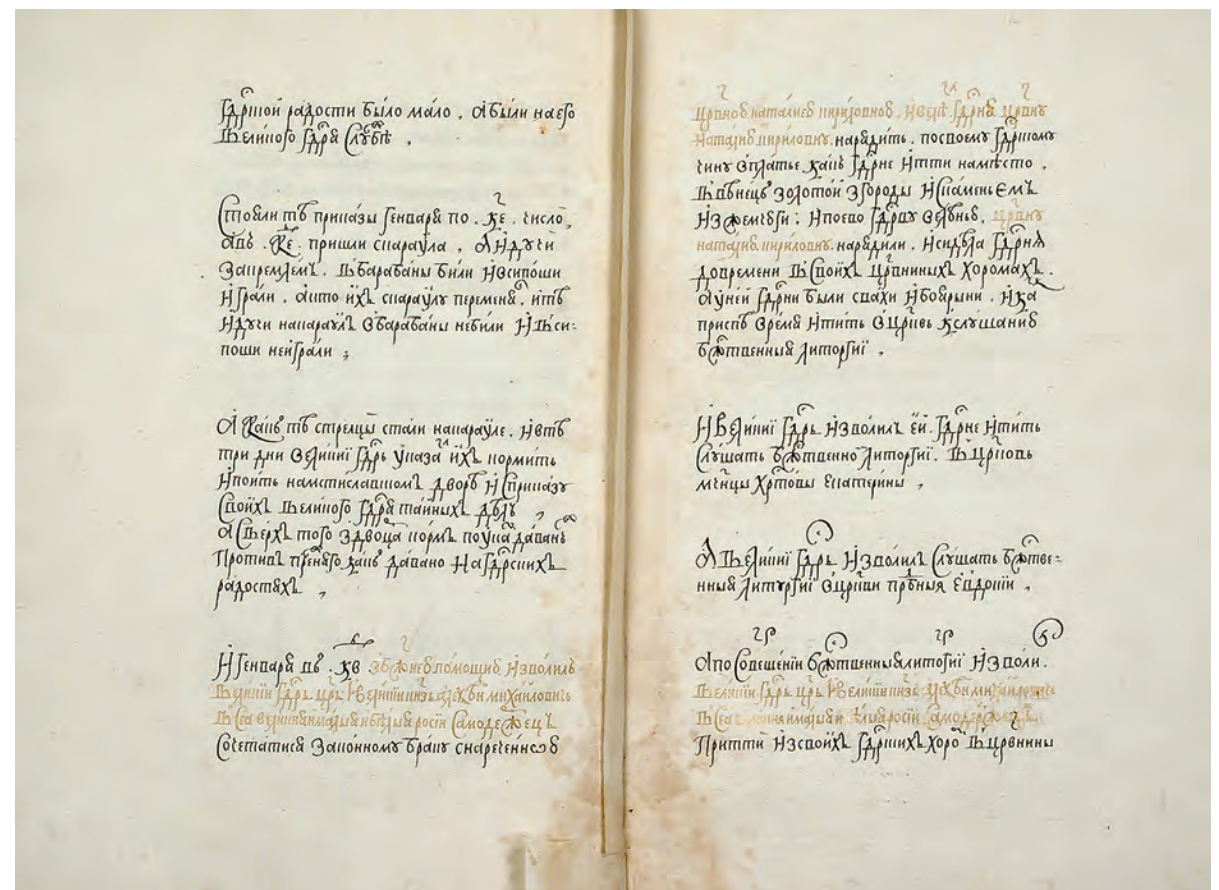 Гдрской радости было мало . а были на его
великого гдря службѣ .
Стояли тѣ приказы генваря по . ке . число ,
а въ . ке . пришли с караула . а идучи
за кремлемъ . въ барабаны били и в сипоши
играли . а кто ихъ с караулу переменя , и тѣ
идучи на караулъ в барабаны не били и въ си-
поши не играли ;
А какъ тѣ стрелцы стали на карауле . и в тѣ
три дни великиї гдрь указа ихъ кормить
и поить на мстиславскомъ дворѣ и с приказу
своихъ великого гдря таиныхъ дѣлъ ,
а сверхъ того
противъ прежняго какъ давано на гдрскихъ
радостяхъ ,
И генваря въ . кв . з бжнею помощию изволилъ
великиї гдрь црь и великиї кнзь алеѯѣи михаиловичь
всеа великия и малыя и бѣлыя росиї самодержецъ
сочетатися законному браку с нареченною
црвною наталиею кириловною . и велѣ гдрню црвну
наталию кириловну . нарядить . по своему гдрскому
чину в платье какъ гдрне итти на мѣсто .
въ вѣнецъ золотой з городы и с каменьемъ
и з жемчюги : и по ево гдрву велѣнью . црвну
наталию кириловну . нарядили . и сидѣла гдрня
до времени въ своихъ црвниныхъ хоромахъ .
а у ней гдрни были свахи и боярыни . и ка
приспѣ время итить в црковь к слушанию
бжтвенныя литоргиї .
И великиї гдрь изволилъ еї гдрне итить
слушать бжтвенно литоргиї . въ црковь
мчнцы хртовы екатерины ,
А великиї гдрь изволилъ слушать бжтве-
нныя литургиї в цркви прпбныя евдокиї .
А по совешениї бжтвенныя литогиї изволи .
великиї гдрь црь и великиї кнзь алеѯѣи михаиловичь
всеа великия и малыя и бѣлыя росиї самодержецъ
притти из своихъ гдрскихъ хоро въ црвнины